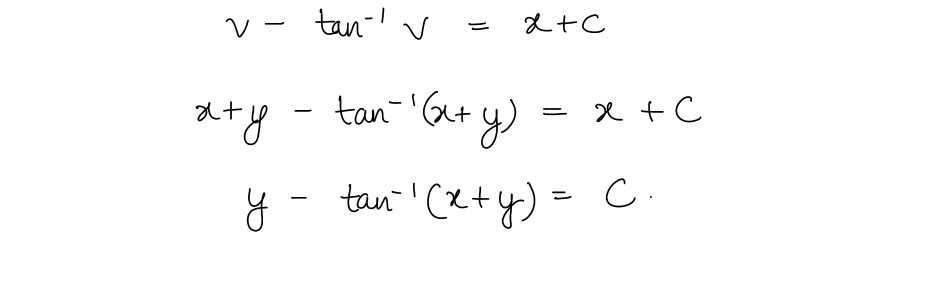 v - tan⁻¹ v = x + c
x+y - tan⁻¹(x+y) = x + C
y - tan⁻¹(x+y) = C.